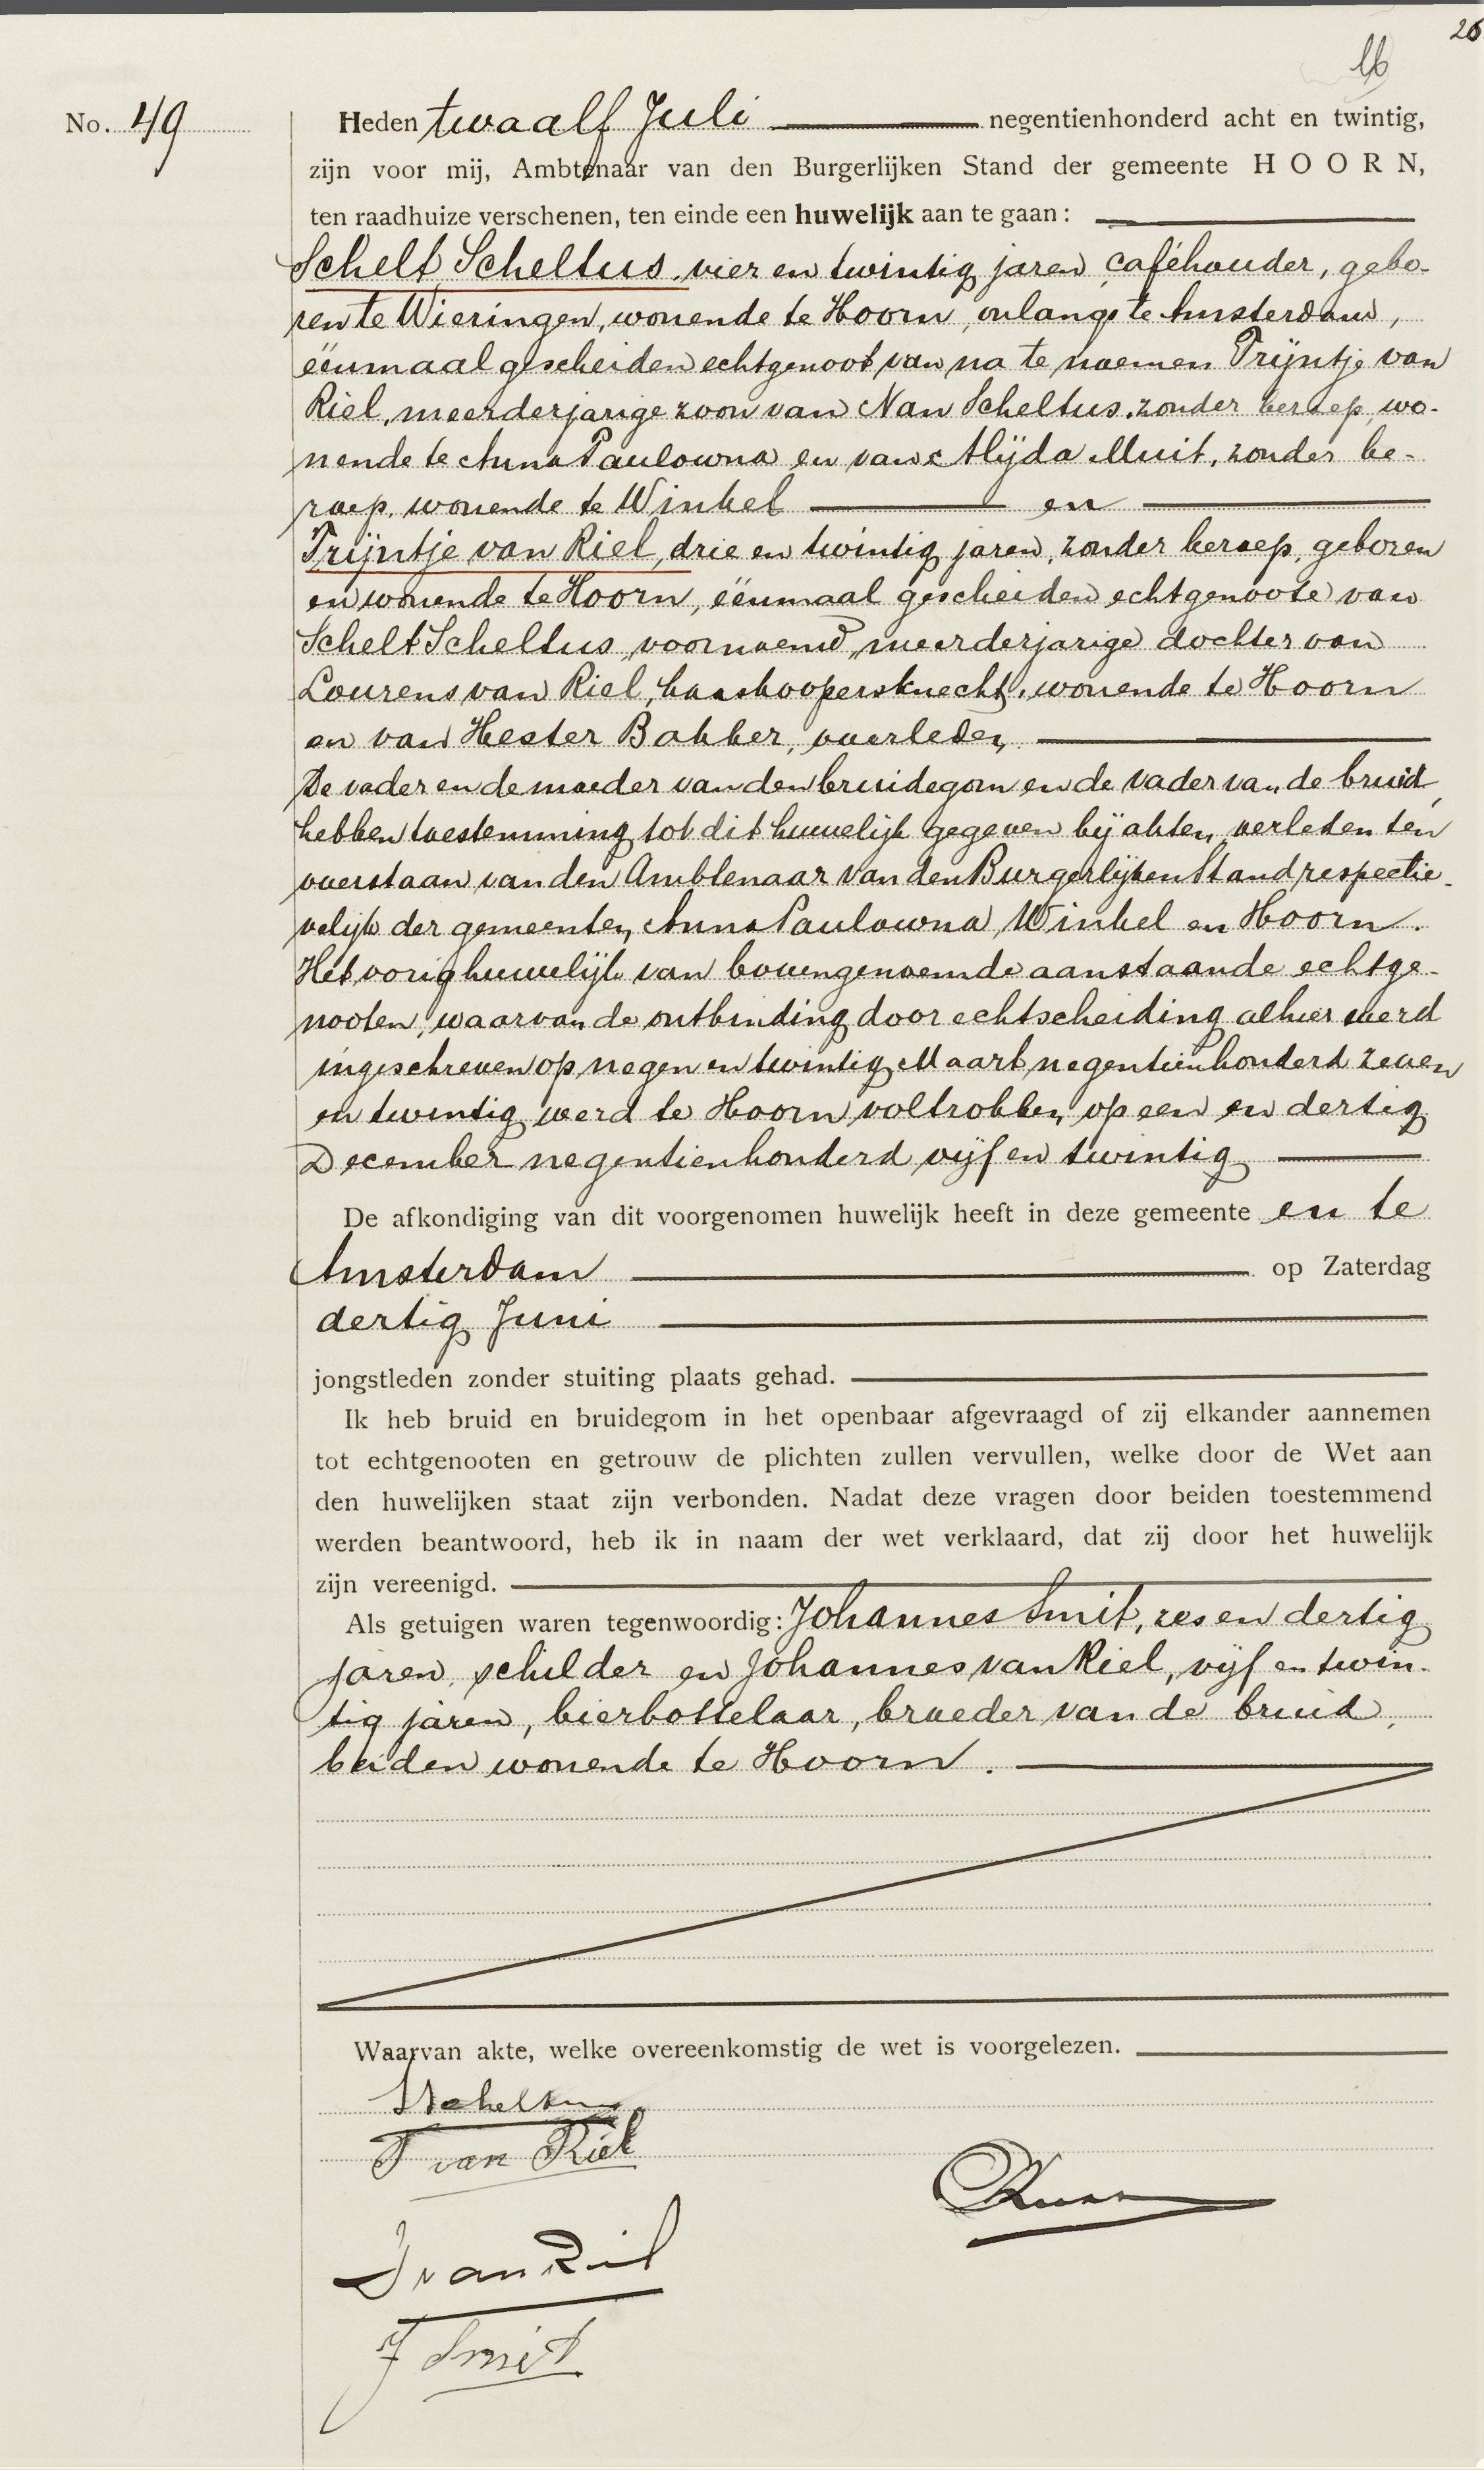 26
16
No. 49
Heden twaalf Juli negentienhonderd acht en twintig,
zijn voor mij, Ambtenaar van den Burgerlijken Stand der gemeente HOORN,
ten raadhuize verschenen, ten einde een huwelijk aan te gaan:
Schelt Scheltus, vier en twintig jaren, caféhouder, gebo-
ren te Wieringen, wonende te Hoorn, onlangs te Amsterdam,
éénmaal gescheiden echtgenoot van na te noemen Trijntje van
Riel, meerderjarige zoon van Nan Scheltus, zonder beroep, wo-
nende te Anna Paulowna en van Alijda Muit, zonder be-
roep, wonende te Winkel en
Trijntje van Riel, drie en twintig jaren, zonder beroep, geboren
en wonende te Hoorn, éénmaal gescheiden echtgenoote van
Schelt Scheltus, voornoemd, meerderjarige dochter van
Lourens van Riel, kaaskoopersknecht, wonende te Hoorn
en van Hester Bakker, overleden
De vader en de moeder van den bruidegom en de vader van de bruid,
hebben toestemming tot dit huwelijk gegeven bij akten, verleden ten
overstaan van den Ambtenaar van den Burgerlijken Stand respectie-
velijk der gemeenten Anna Paulowna, Winkel en Hoorn.
Het vorig huwelijk van bovengenoemde aanstaande echtge-
nooten, waarvan de ontbinding door echtscheiding alhier werd
ingeschreven op negen en twintig Maart negentienhonderd zeven
en twintig werd te Hoorn voltrokken op een en dertig
December negentienhonderd vijf en twintig
De afkondiging van dit voorgenomen huwelijk heeft in deze gemeente en te
Amsterdam op Zaterdag
dertig Juni
jongstleden zonder stuiting plaats gehad.
Ik heb bruid en bruidegom in het openbaar afgevraagd of zij elkander aannemen
tot echtgenooten en getrouw de plichten zullen vervullen, welke door de Wet aan
den huwelijken staat zijn verbonden. Nadat deze vragen door beiden toestemmend
werden beantwoord, heb ik in naam der wet verklaard, dat zij door het huwelijk
zijn vereenigd.
Als getuigen waren tegenwoordig: Johannes Smit, zes en dertig
jaren, schilder en Johannes van Riel, vijf en twin-
tig jaren, bierbottelaar, broeder van de bruid,
beiden wonende te Hoorn.
Waarvan akte, welke overeenkomstig de wet is voorgelezen.
T van Riel
J van Riel
J Smit